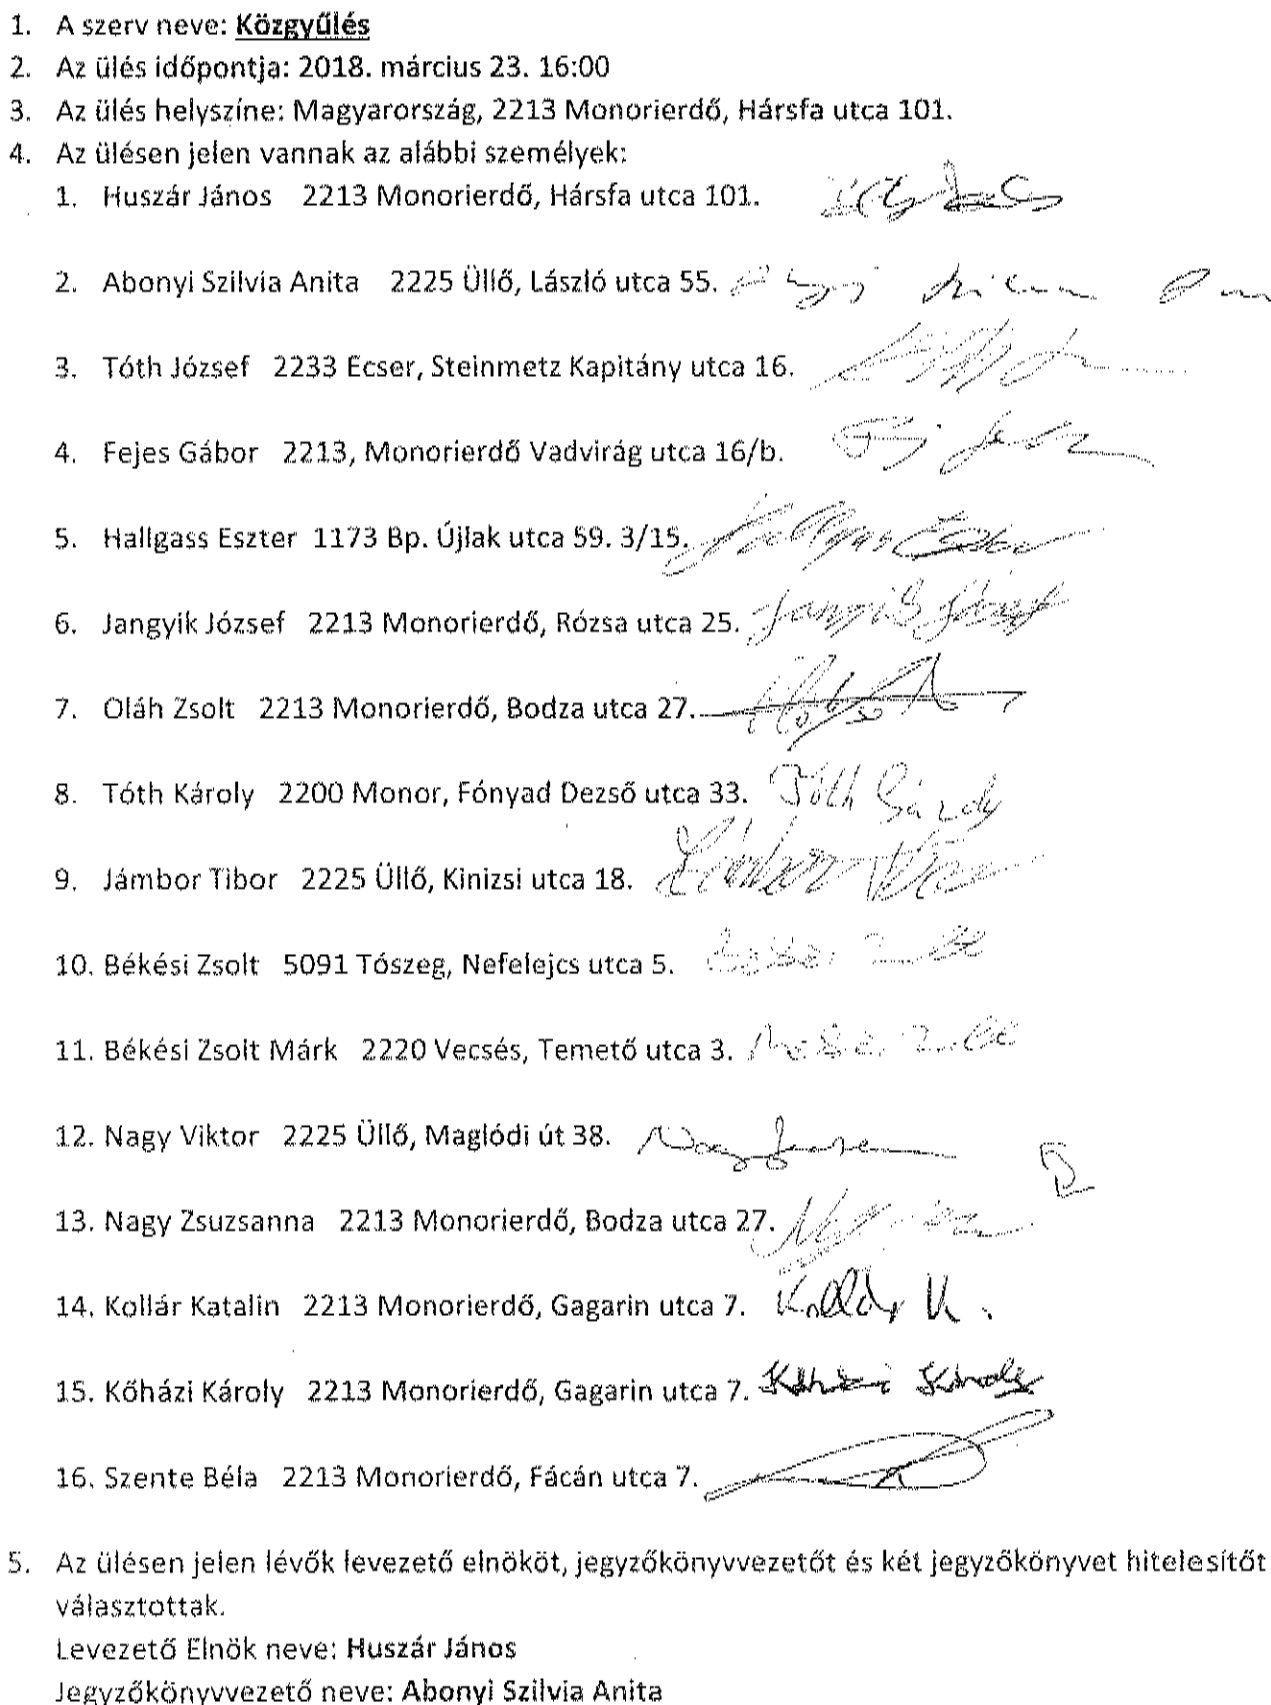 1. A szerv neve: Közgyűlés
2. Az ülés időpontja: 2018. március 23. 16:00
3. Az ülés helyszíne: Magyarország, 2213 Monorierdő, Hársfa utca 101.
4. Az ülésen jelen vannak az alábbi személyek:
1. Huszár János 2213 Monorierdő, Hársfa utca 101.
2. Abonyi Szilvia Anita 2225 Üllő, László utca 55.
3. Tóth József 2233 Ecser, Steinmetz Kapitány utca 16.
4. Fejes Gábor 2213, Monorierdő Vadvirág utca 16/b.
5. Hallgass Eszter 1173 Bp. Újlak utca 59. 3/15. Hallgass Eszter
6. Jangyik József 2213 Monorierdő, Rózsa utca 25. Jangyik József
7. Oláh Zsolt 2213 Monorierdő, Bodza utca 27.
8. Tóth Károly 2200 Monor, Fónyad Dezső utca 33. Tóth Károly
9. Jámbor Tibor 2225 Üllő, Kinizsi utca 18.
10. Békési Zsolt 5091 Tószeg, Nefelejcs utca 5.
11. Békési Zsolt Márk 2220 Vecsés, Temető utca 3.
12. Nagy Viktor 2225 Üllő, Maglódi út 38. Nagy
13. Nagy Zsuzsanna 2213 Monorierdő, Bodza utca 27.
14. Kollár Katalin 2213 Monorierdő, Gagarin utca 7. Kollár K.
15. Kőházi Károly 2213 Monorierdő, Gagarin utca 7. Kőházi Károly
16. Szente Béla 2213 Monorierdő, Fácán utca 7.
5. Az ülésen jelen lévők levezető elnököt, jegyzőkönyvvezetőt és két jegyzőkönyvet hitelesítőt
választottak.
Levezető Elnök neve: Huszár János
Jegyzőkönyvvezető neve: Abonyi Szilvia Anita